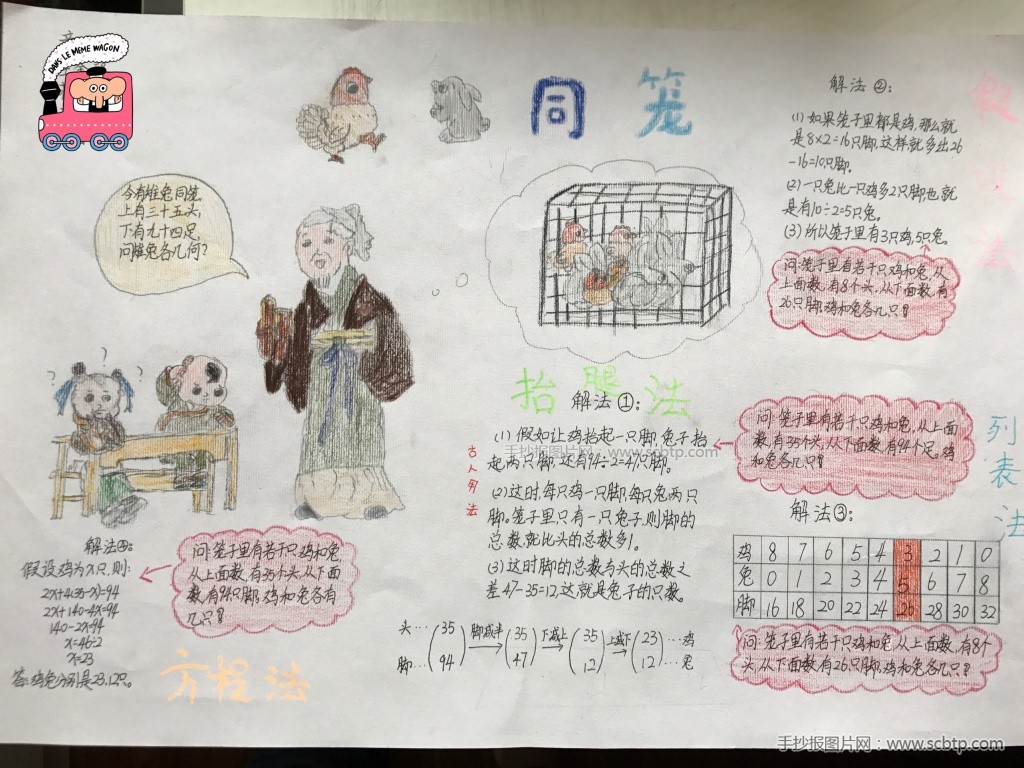 DANS LE MEME WAGON
同笼
今有雉兔同笼,
上有三十五头,
下有九十四足,
问雉兔各几何?
? ? ?
解法②:
(1)如果笼子里都是鸡,那么就
是8×2=16只脚,这样就多出26
-16=10只脚.
(2)一只兔比一只鸡多2只脚,也就
是有10÷2=5只兔。
(3)所以笼子里有3只鸡,5只兔。
问:笼子里有若干只鸡和兔,从
上面数,有8个头,从下面数,有
26只脚,鸡和兔各几只?
抬腿法
解法①:
古人用法
(1)假如让鸡抬起一只脚,兔子抬
起两只脚,还有94÷2=47只脚。
(2)这时,每只鸡一只脚,每只兔两只
脚。笼子里只有一只兔子,则脚的
总数就比头的总数多1。
(3)这时脚的总数与头的总数之
差47-35=12,这就是兔子的只数。
问:笼子里有若干只鸡和兔,从上面
数,有35个头,从下面数,有94个足,鸡
和兔各几只?
头… (35 脚减半 (35 下减上 (35 上减下 (23 …鸡
脚… 94) → 47) → 12) → 12) …兔
列表法
解法③:
鸡 8 7 6 5 4 3 2 1 0
兔 0 1 2 3 4 5 6 7 8
脚 16 18 20 22 24 26 28 30 32
问:笼子里有若干只鸡和兔,从上面数,有8个
头,从下面数有26只脚,鸡和兔各几只?
解法④:
假设鸡为X只,则:
2X+4(35-X)=94
2X+140-4X=94
140-2X=94
X=46÷2
X=23
答:鸡兔分别是23,12只。
问:笼子里有若干只鸡和兔
从上面数,有35个头,从下面
数,有94只脚,鸡和兔各有
几只?
方程法
手抄报图片网:www.scbtp.com
手抄报图片网:www.scbtp.com